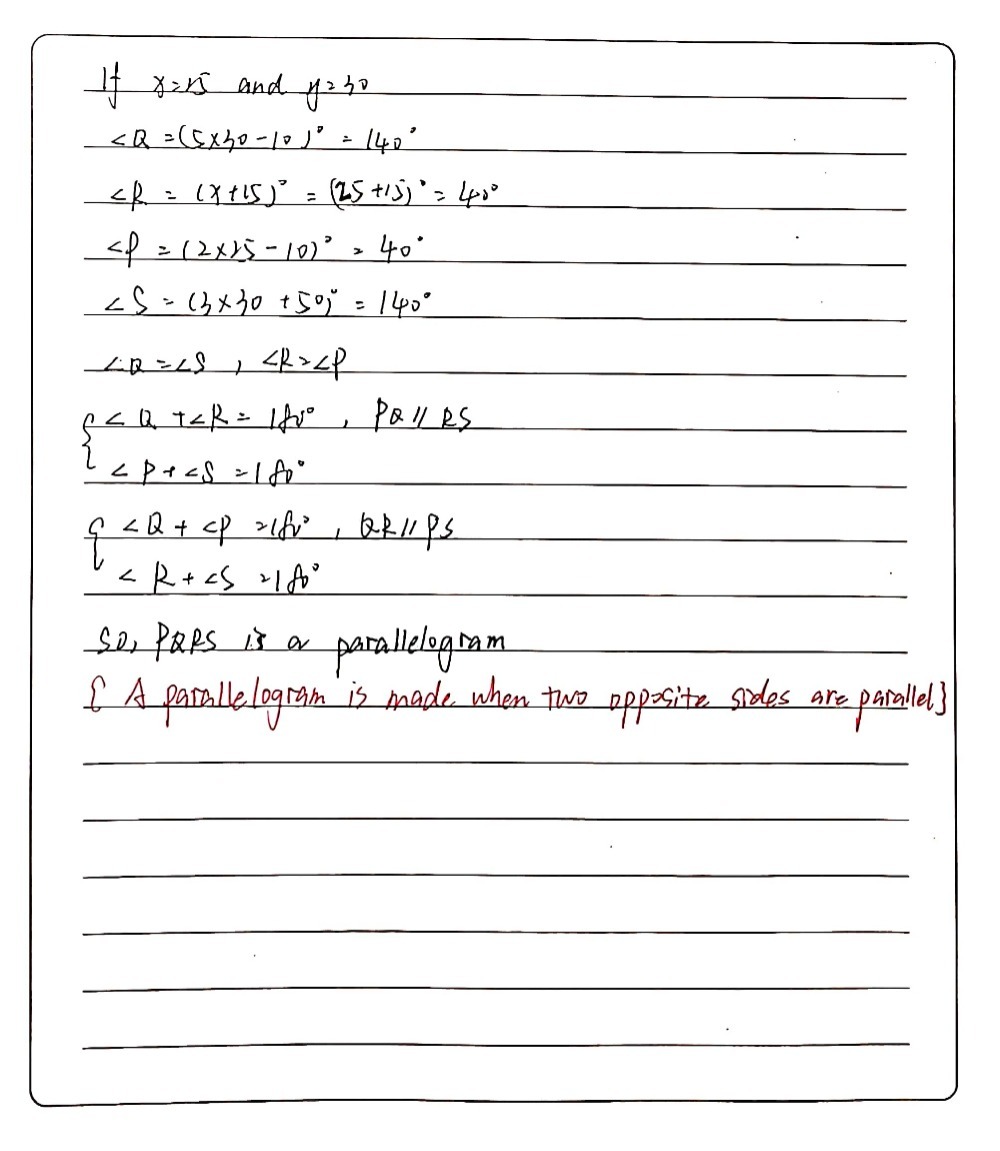 If x=25 and y=30
∠Q = (5×30-10)° = 140°
∠R = (x+15)° = (25+15)° = 40°
∠P = (2×25-10)° = 40°
∠S = (3×30+50)° = 140°
∠Q=∠S, ∠R=∠P
{∠Q+∠R=180°, PQ//RS
∠P+∠S=180°
{∠Q+∠P=180°, QR//PS
∠R+∠S=180°
SO, PQRS is a parallelogram
{ A parallelogram is made when two opposite sides are parallel}